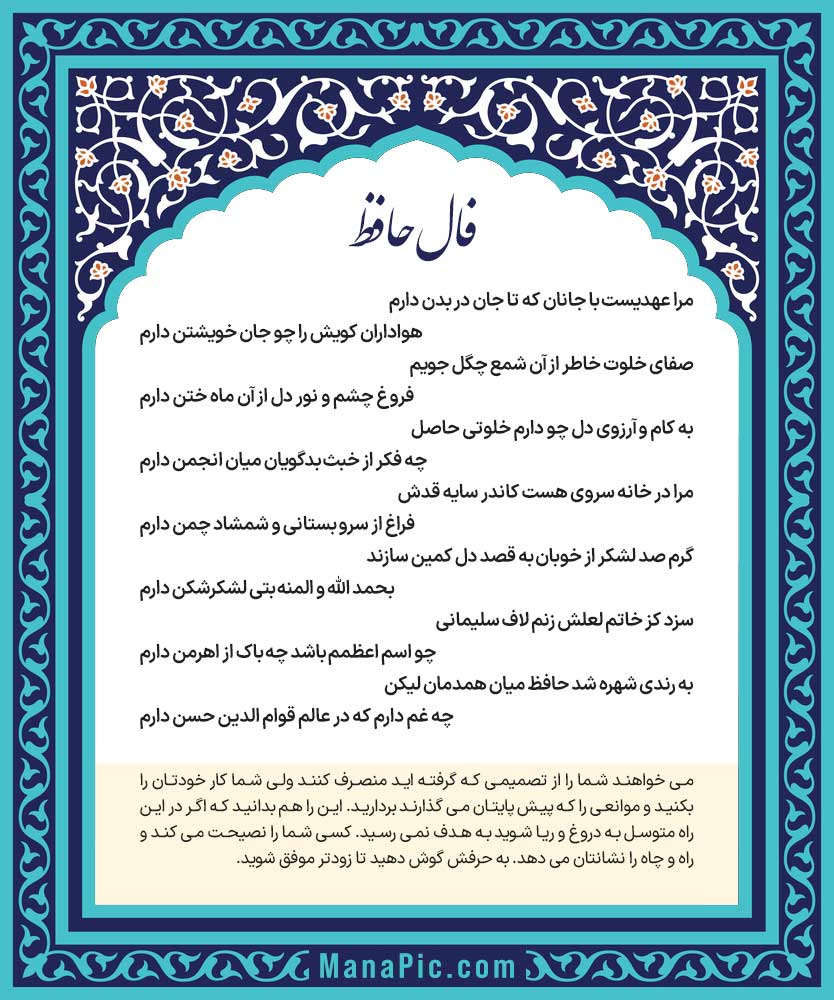 فال حافظ
مرا عهدیست با جانان که تا جان در بدن دارم
هواداران کویش را چو جان خویشتن دارم
صفای خلوت خاطر از آن شمع چگل جویم
فروغ چشم و نور دل از آن ماه ختن دارم
به کام و آرزوی دل چو دارم خلوتی حاصل
چه فکر از خبث بدگویان میان انجمن دارم
مرا در خانه سروی هست کاندر سایه قدش
فراغ از سرو بستانی و شمشاد چمن دارم
گرم صد لشکر از خوبان به قصد دل کمین سازند
بحمد الله و المنه بتی لشکرشکن دارم
سزد کز خاتم لعلش زنم لاف سلیمانی
چو اسم اعظمم باشد چه باک از اهرمن دارم
به رندی شهره شد حافظ میان همدمان لیکن
چه غم دارم که در عالم قوام الدین حسن دارم
می خواهند شما را از تصمیمی که گرفته اید منصرف کنند ولی شما کار خودتان را
بکنید و موانعی را که پیش پایتان می گذارند بردارید. این را هم بدانید که اگر در این
راه متوسل به دروغ و ریا شوید به هدف نمی رسید. کسی شما را نصیحت می کند و
راه و چاه را نشانتان می دهد. به حرفش گوش دهید تا زودتر موفق شوید.
ManaPic.com